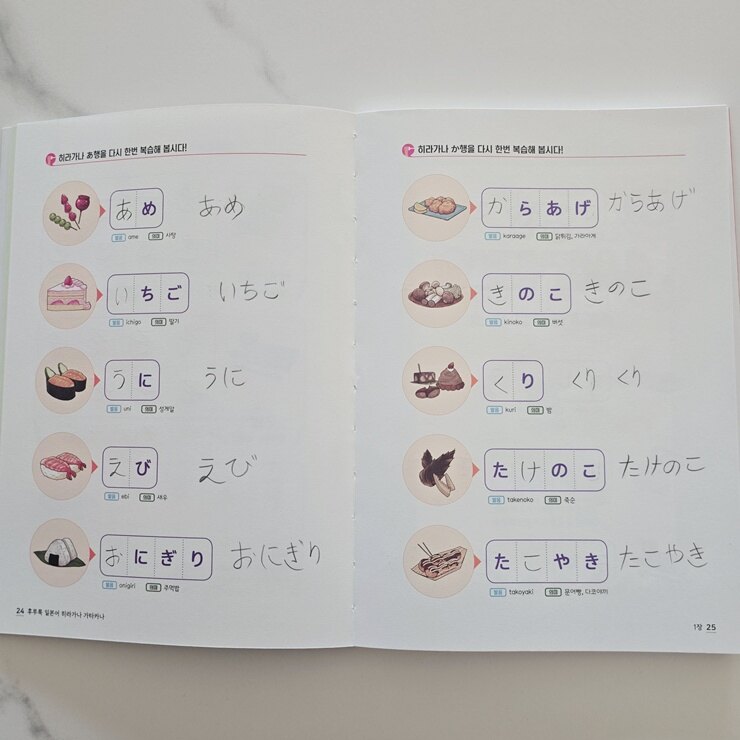 히라가나 あ행을 다시 한번 복습해 봅시다!
あめ あめ
발음 ame 의미 사탕
いちご いちご
발음 ichigo 의미 딸기
うに うに
발음 uni 의미 성게알
えび えび
발음 ebi 의미 새우
おにぎり おにぎり
발음 onigiri 의미 주먹밥
24 후루룩 일본어 히라가나 가타카나
히라가나 か행을 다시 한번 복습해 봅시다!
からあげ からあげ
발음 karaage 의미 닭튀김, 가라아게
きのこ きのこ
발음 kinoko 의미 버섯
くり くり くり
발음 kuri 의미 밤
たけのこ たけのこ
발음 takenoko 의미 죽순
たこやき たこやき
발음 takoyaki 의미 문어빵, 다코야끼
1장 25